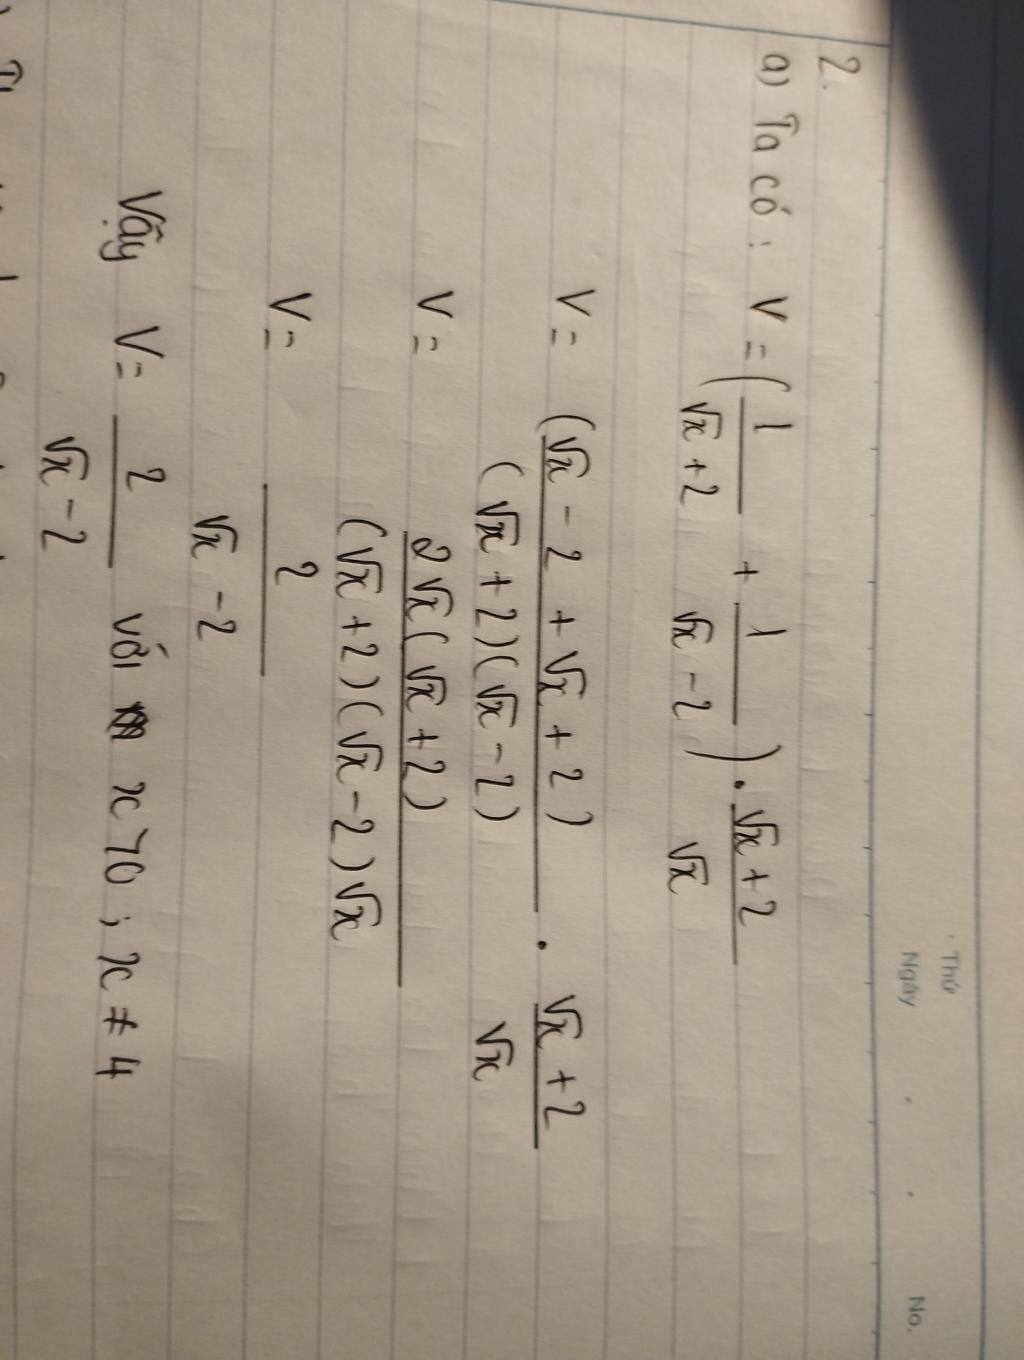 Thứ
Ngày . . No.
2.
a) Ta có : V = ( 1/(√x + 2) + 1/(√x - 2) ) . (√x + 2)/√x
V = (√x - 2 + √x + 2)/((√x + 2)(√x - 2)) . (√x + 2)/√x
V = 2√x(√x + 2)/((√x + 2)(√x - 2)√x)
V = 2/(√x - 2)
Vậy V = 2/(√x - 2) với x > 0 ; x ≠ 4